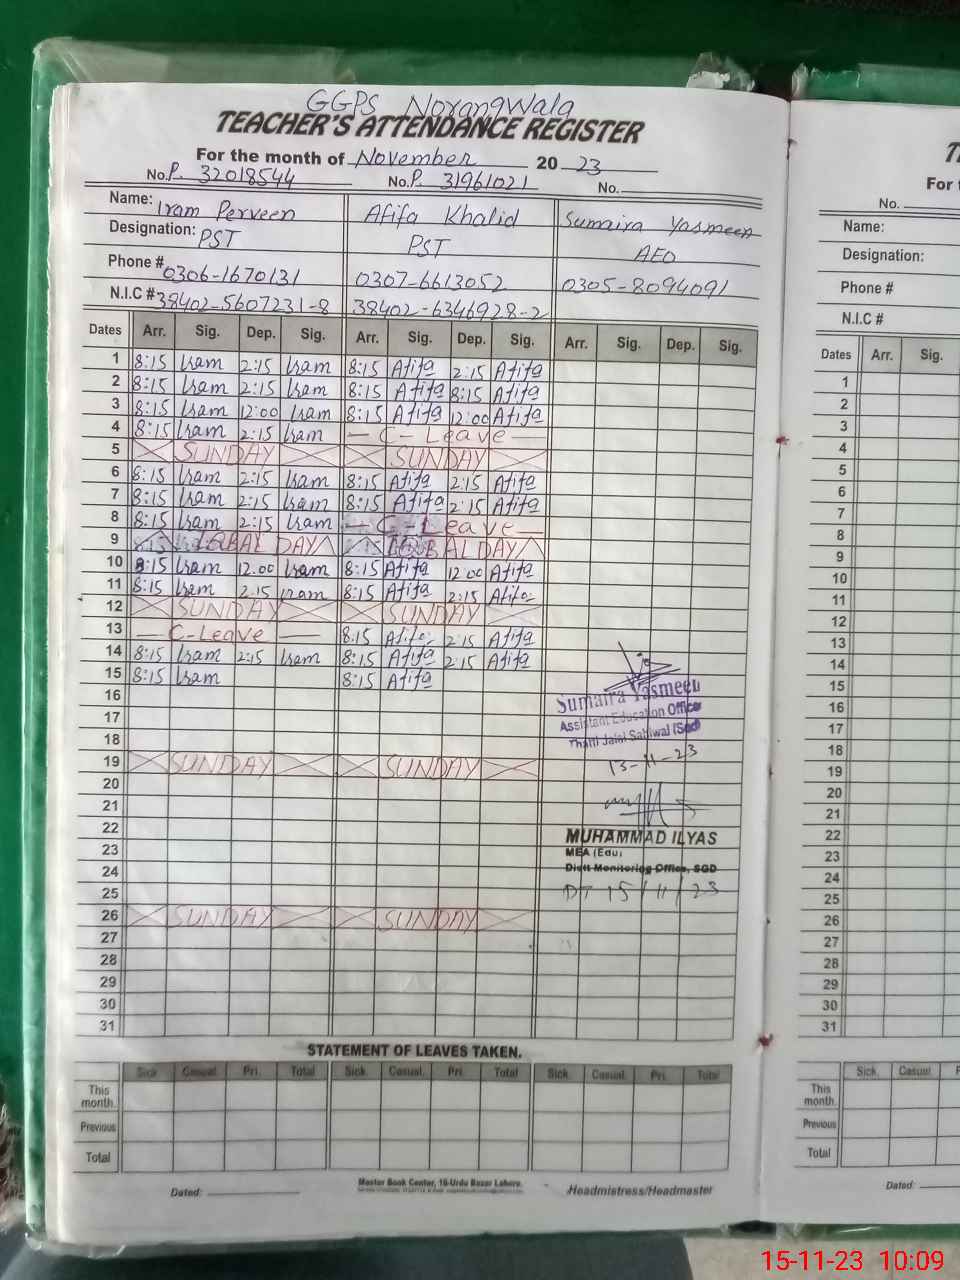 GGPS Norangwala
TEACHER'S ATTENDANCE REGISTER
For the month of November 20 23
No. P. 32018544 No. P. 31961021 No.
Name: Iram Perveen Afifa Khalid Sumaira Yasmeen
Designation: PST PST AEO
Phone # 0306-1670131 0307-6613052 0305-8094091
N.I.C # 38402-5607231-8 38402-6346928-2
Dates Arr. Sig. Dep. Sig. Arr. Sig. Dep. Sig. Arr. Sig. Dep. Sig.
1 8:15 Iram 2:15 Iram 8:15 Afifa 2:15 Afifa
2 8:15 Iram 2:15 Iram 8:15 Afifa 8:15 Afifa
3 8:15 Iram 12:00 Iram 8:15 Afifa 12:00 Afifa
4 8:15 Iram 2:15 Iram — C - Leave —
5 SUNDAY SUNDAY
6 8:15 Iram 2:15 Iram 8:15 Afifa 2:15 Afifa
7 8:15 Iram 2:15 Iram 8:15 Afifa 2:15 Afifa
8 8:15 Iram 2:15 Iram — C - Leave —
9 IQBAL DAY IQBAL DAY
10 8:15 Iram 12.00 Iram 8:15 Afifa 12 00 Afifa
11 8:15 Iram 2.15 Iram 8:15 Afifa 2:15 Afifa
12 SUNDAY SUNDAY
13 — C-Leave — 8.15 Afifa 2:15 Afifa
14 8:15 Iram 2:15 Iram 8:15 Afifa 2:15 Afifa
15 8:15 Iram 8:15 Afifa
16
17
18
19 SUNDAY SUNDAY
20
21
22
23
24
25
26 SUNDAY SUNDAY
27
28
29
30
31
Sumaira Yasmeen
Assistant Education Officer
Thatti Jalal Sahiwal (Sgd)
13-11-23
MUHAMMAD ILYAS
MEA (Edu)
Distt Monitoring Office, SGD
DT 15/11/23
STATEMENT OF LEAVES TAKEN.
Sick Casual. Pri. Total Sick. Casual. Pri. Total Sick. Casual. Pri. Total
This month.
Previous
Total
Dated:
Master Book Center, 16-Urdu Bazar Lahore.
Headmistress/Headmaster
T
For t
No.
Name:
Designation:
Phone #
N.I.C #
Dates Arr. Sig.
1
2
3
4
5
6
7
8
9
10
11
12
13
14
15
16
17
18
19
20
21
22
23
24
25
26
27
28
29
30
31
Sick. Casual P
This month.
Previous
Total
Dated:
15-11-23 10:09